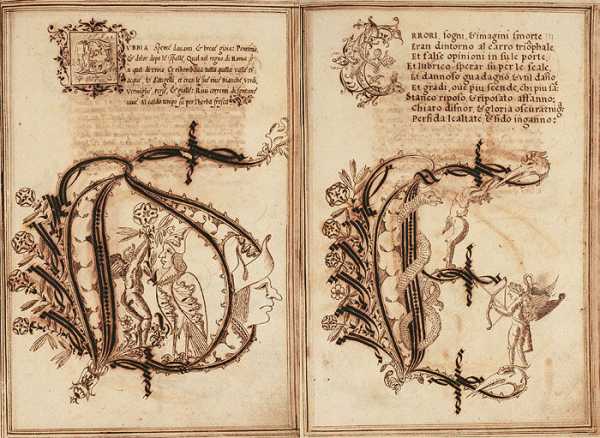 DVBBIA Speme dauanti, & breue gioia: Peniten
& dolor dopo le spalle: Qual nel regno di Roma
quel di troia Et ribombaua tutta quella valle et d'
acque, & d'augelli, et eran le sue riue bianche, verdi,
Vermiglie, perse, & gialle: Riui correnti di fontane
viue Al caldo tempo su per l'herba fresca
ERRORI, sogni, & imagini smorte
Eran dintorno al carro triôphale,
Et false opinioni in sule porte,
Et lubrico sperar su per le scale,
Et dannoso guadagno & vtil dãno,
Et gradi, oue piu scende, chi piu sa:
Stanco riposo, & riposato affanno:
Chiaro disnor, & gloria oscura
Perfida lealtate & fido inganno:
D
E